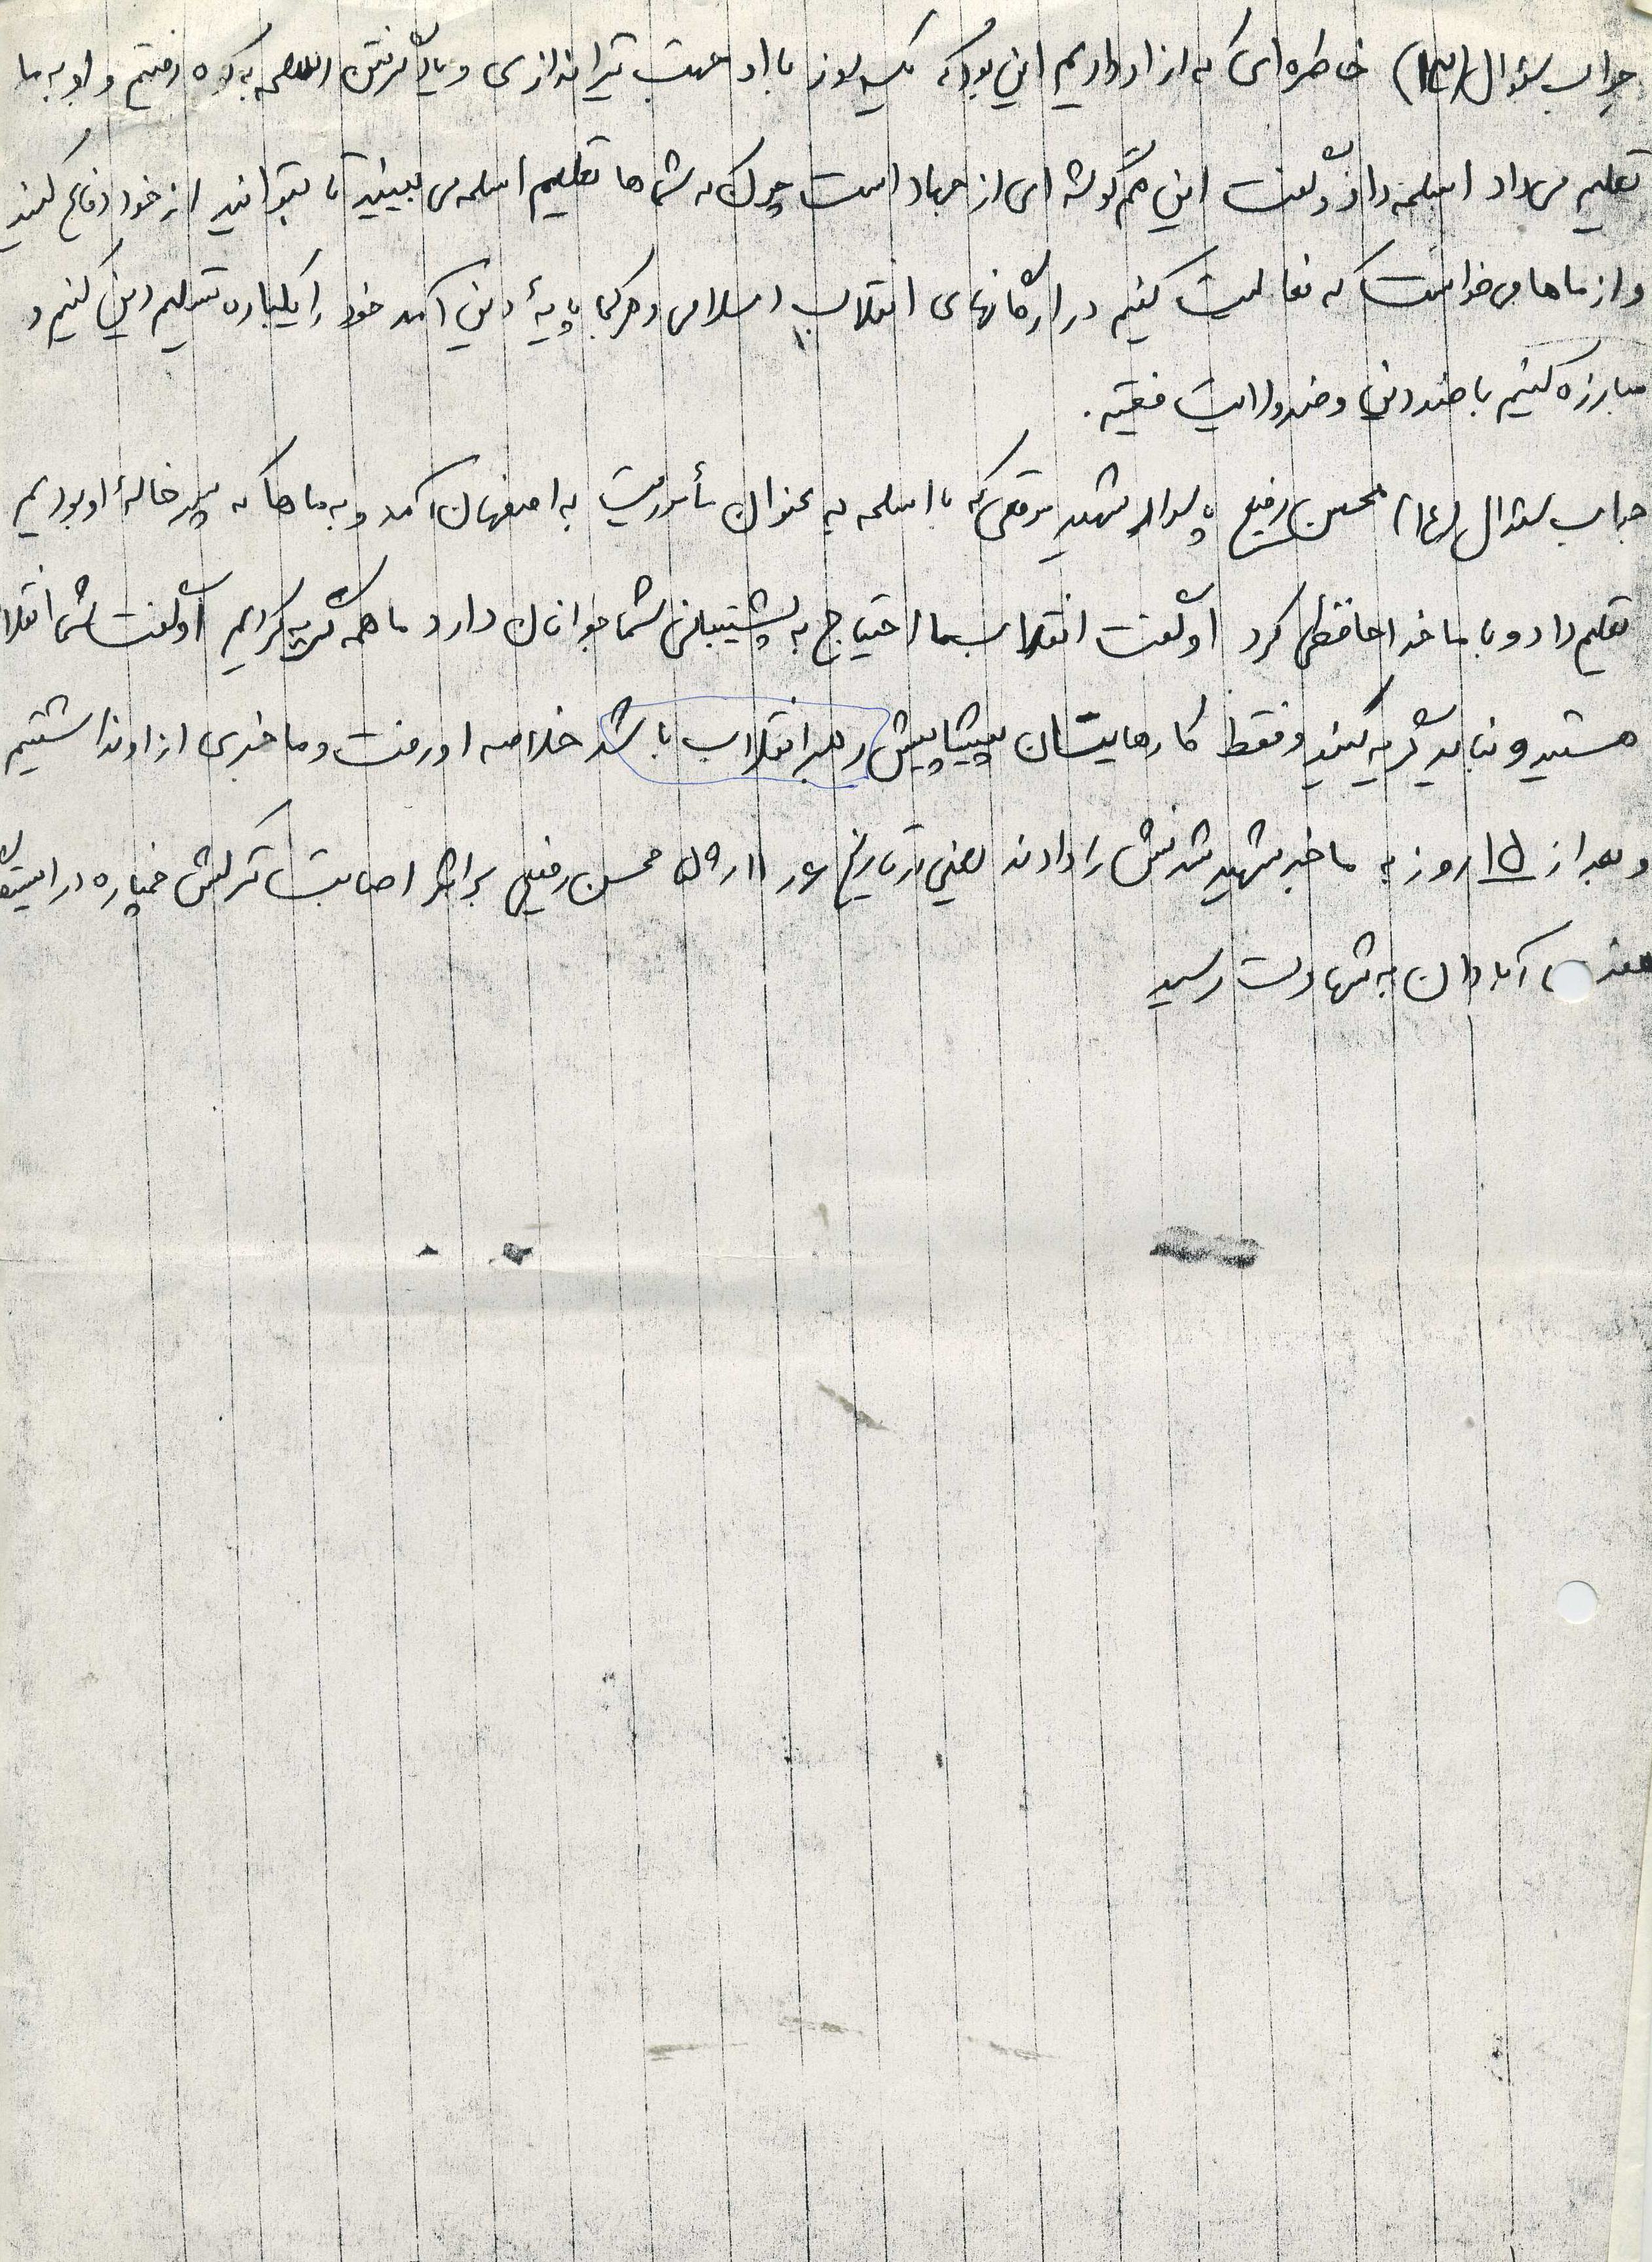 جواب سئوال (۱۳) خاطره‌ای که از او داریم این بود که یک روز با او جهت تیراندازی و یاد گرفتن اسلحه به کوه رفتیم و او به ما
تعلیم می‌داد اسلحه را و گفت این هم گوشه‌ای از جهاد است چون که شما ها تعلیم اسلحه می بینید تا بتوانید از خود دفاع کنید
و از ماها می خواست که فعالیت کنیم در ارگانهای انقلاب اسلامی و هر کجا پایهٔ دین آمد خود را یکباره تسلیم دین کنیم و
مبارزه کنیم با ضد دین و ضد ولایت فقیه .
جواب سئوال (۱۴) محسن رفیعی پاسدار شهید موقعی که با اسلحه به عنوان مأموریت به اصفهان آمد و به ماها که پسر خالهٔ او بودیم
تعلیم داد و با ما خداحافظی کرد او گفت انقلاب ما احتیاج به پشتیبانی شما جوانان دارد ما همه گریه کردیم او گفت شما انقلا
هستید و نباید گریه کنید و فقط کارهایتان پیشاپیش رهبر انقلاب باشد خلاصه او رفت و ما خبری از او نداشتیم
و بعد از ۱۵ روز به ما خبر شهید شدنش را دادند یعنی در تاریخ محسن رفیعی براثر اصابت ترکش خمپاره در ایستگاه
آبادان به شهادت رسید